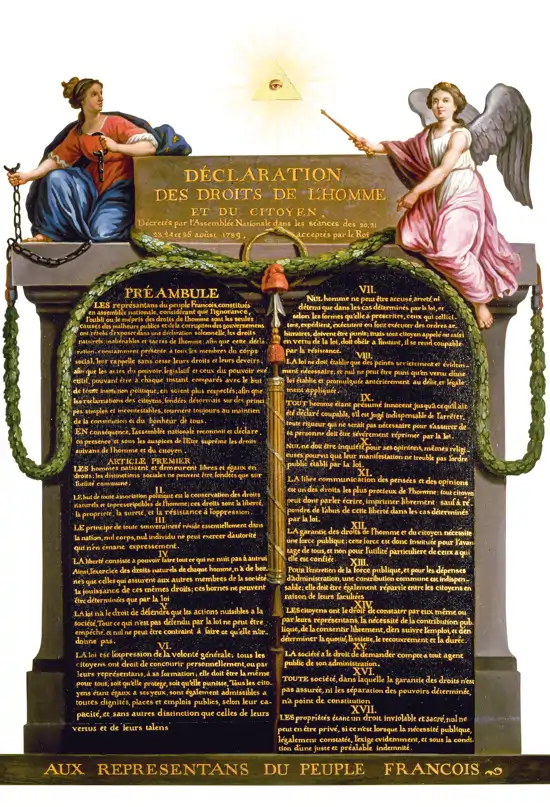 DÉCLARATION
DES DROITS DE L'HOMME
ET DU CITOYEN,
Décretés par l'Assemblée Nationale dans les séances des 20, 21
23, 24 et 26 août 1789, acceptés par le Roi
PRÉAMBULE
LES représentans du peuple François, constitués
en assemblée nationale, considérant que l'ignorance,
l'oubli ou le mépris des droits de l'homme sont les seules
causes des malheurs publics et de la corruption des gouvernemens
ont résolu d'exposer dans une déclaration solemnelle, les droits
naturels, inaliénables et sacrés de l'homme; afin que cette décla-
ration, constamment présente à tous les membres du corps
social, leur rappelle sans cesse leurs droits et leurs devoirs;
afin que les actes du pouvoir législatif et ceux du pouvoir exé-
cutif, pouvant être à chaque instant comparés avec le but
de toute institution politique, en soient plus respectés; afin que
les réclamations des citoyens, fondées désormais sur des princi-
pes simples et incontestables, tournent toujours au maintien
de la constitution et du bonheur de tous.
EN conséquence, l'assemblée nationale reconnoit et déclare,
en présence et sous les auspices de l'Etre suprême les droits
suivans de l'homme et du citoyen.
ARTICLE PREMIER.
LES hommes naissent et demeurent libres et égaux en
droits; les distinctions sociales ne peuvent être fondées que sur
l'utilité commune.
II.
LE but de toute association politique est la conservation des droits
naturels et imprescriptibles de l'homme; ces droits sont la liberté,
la propriété, la sureté, et la résistance à l'oppression.
III.
LE principe de toute souveraineté réside essentiellement dans
la nation, nul corps, nul individu ne peut exercer d'autorité
qui n'en émane expressément.
IV.
LA liberté consiste à pouvoir faire tout ce qui ne nuit pas à autrui
Ainsi, l'exercice des droits naturels de chaque homme, n'a de bor-
nes que celles qui assurent aux autres membres de la société
la jouissance de ces mêmes droits; ces bornes ne peuvent
être déterminées que par la loi
V.
LA loi n'a le droit de défendre que les actions nuisibles à la
société. Tout ce qui n'est pas défendu par la loi ne peut être
empêché, et nul ne peut être contraint à faire ce qu'elle n'or-
donne pas.
VI.
LA loi est l'expression de la volonté générale; tous les
citoyens ont droit de concourir personnellement, ou par
leurs représentans, à sa formation; elle doit être la même
pour tous, soit qu'elle protège, soit qu'elle punisse. Tous les cito-
yens étant égaux à ses yeux, sont également admissibles à
toutes dignités, places et emplois publics, selon leur ca-
pacité, et sans autres distinction que celles de leurs
vertus et de leurs talens
VII.
NUL homme ne peut être accusé, arreté, ni
détenu que dans les cas déterminés par la loi, et
selon les formes qu'elle a prescrites, ceux qui sollici-
tent, expédient, exécutent ou font exécuter des ordres ar-
bitraires, doivent être punis; mais tout citoyen appelé ou saisi
en vertu de la loi, doit obéir à l'instant, il se rend coupable
par la résistance.
VIII.
LA loi ne doit établir que des peines strictement et évidem-
ment nécessaire, et nul ne peut être puni qu'en vertu d'une
loi établie et promulguée antérieurement au délit, et légale-
ment appliquée.
IX.
TOUT homme étant présumé innocent jusqu'à ce qu'il ait
été déclaré coupable, s'il est jugé indispensable de l'arrêter,
toute rigueur qui ne serait pas nécessaire pour s'assurer de
sa personne doit être sévèrement réprimée par la loi.
X.
NUL ne doit être inquiété pour ses opinions, mêmes religi-
euses pourvu que leur manifestation ne trouble pas l'ordre
public établi par la loi.
XI.
LA libre communication des pensées et des opinions
est un des droits les plus precieux de l'homme: tout citoyen
peut donc parler, écrire, imprimer librement: sauf à ré-
pondre de l'abus de cette liberté dans les cas déterminés
par la loi.
XII.
LA garantie des droits de l'homme et du citoyen nécessite
une force publique; cette force est donc instituée pour l'avan-
tage de tous, et non pour l'utilité particuliere de ceux à qui
elle est confiée
XIII.
Pour l'entretien de la force publique, et pour les dépenses
d'administration, une contribution commune est indispen-
sable; elle doit être également répartie entre les citoyens en
raison de leurs facultées
XIV.
LES citoyens ont le droit de constater par eux même ou
par leurs représentans, la nécessité de la contribution pub-
lique, de la consentir librement, d'en suivre l'emploi, et d'en
déterminer la quotité, l'assiette, le recouvrement et la durée.
XV.
LA société a le droit de demander compte a tout agent
public de son administration.
XVI.
TOUTE société, dans laquelle la garantie des droits n'est
pas assurée, ni la séparation des pouvoirs déterminée,
n'a point de constitution
XVII.
LES propriétés étant un droit inviolable et sacré, nul ne
peut en être privé, si ce n'est lorsque la nécessité publique,
légalement constatée, l'exige evidemment, et sous la condi-
tion d'une juste et préalable indemnité.
AUX REPRESENTANS DU PEUPLE FRANCOIS